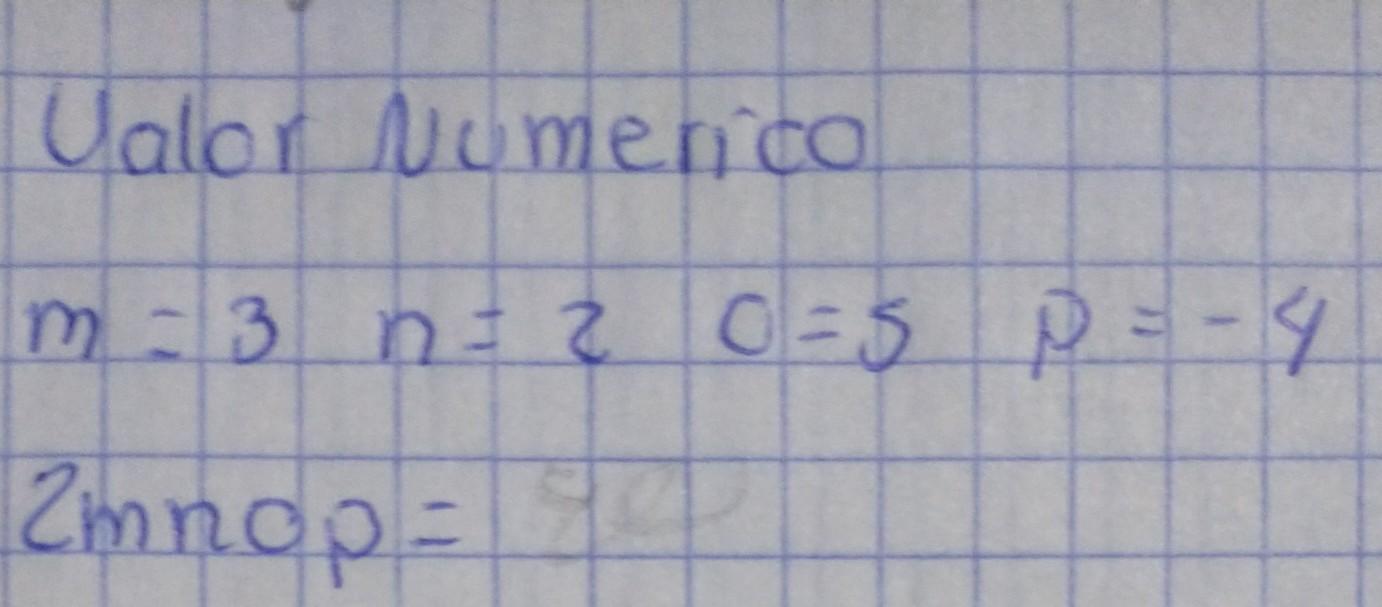 Valor Numerico
m = 3 n = 2 o = 5 p = - 4
2mnop =